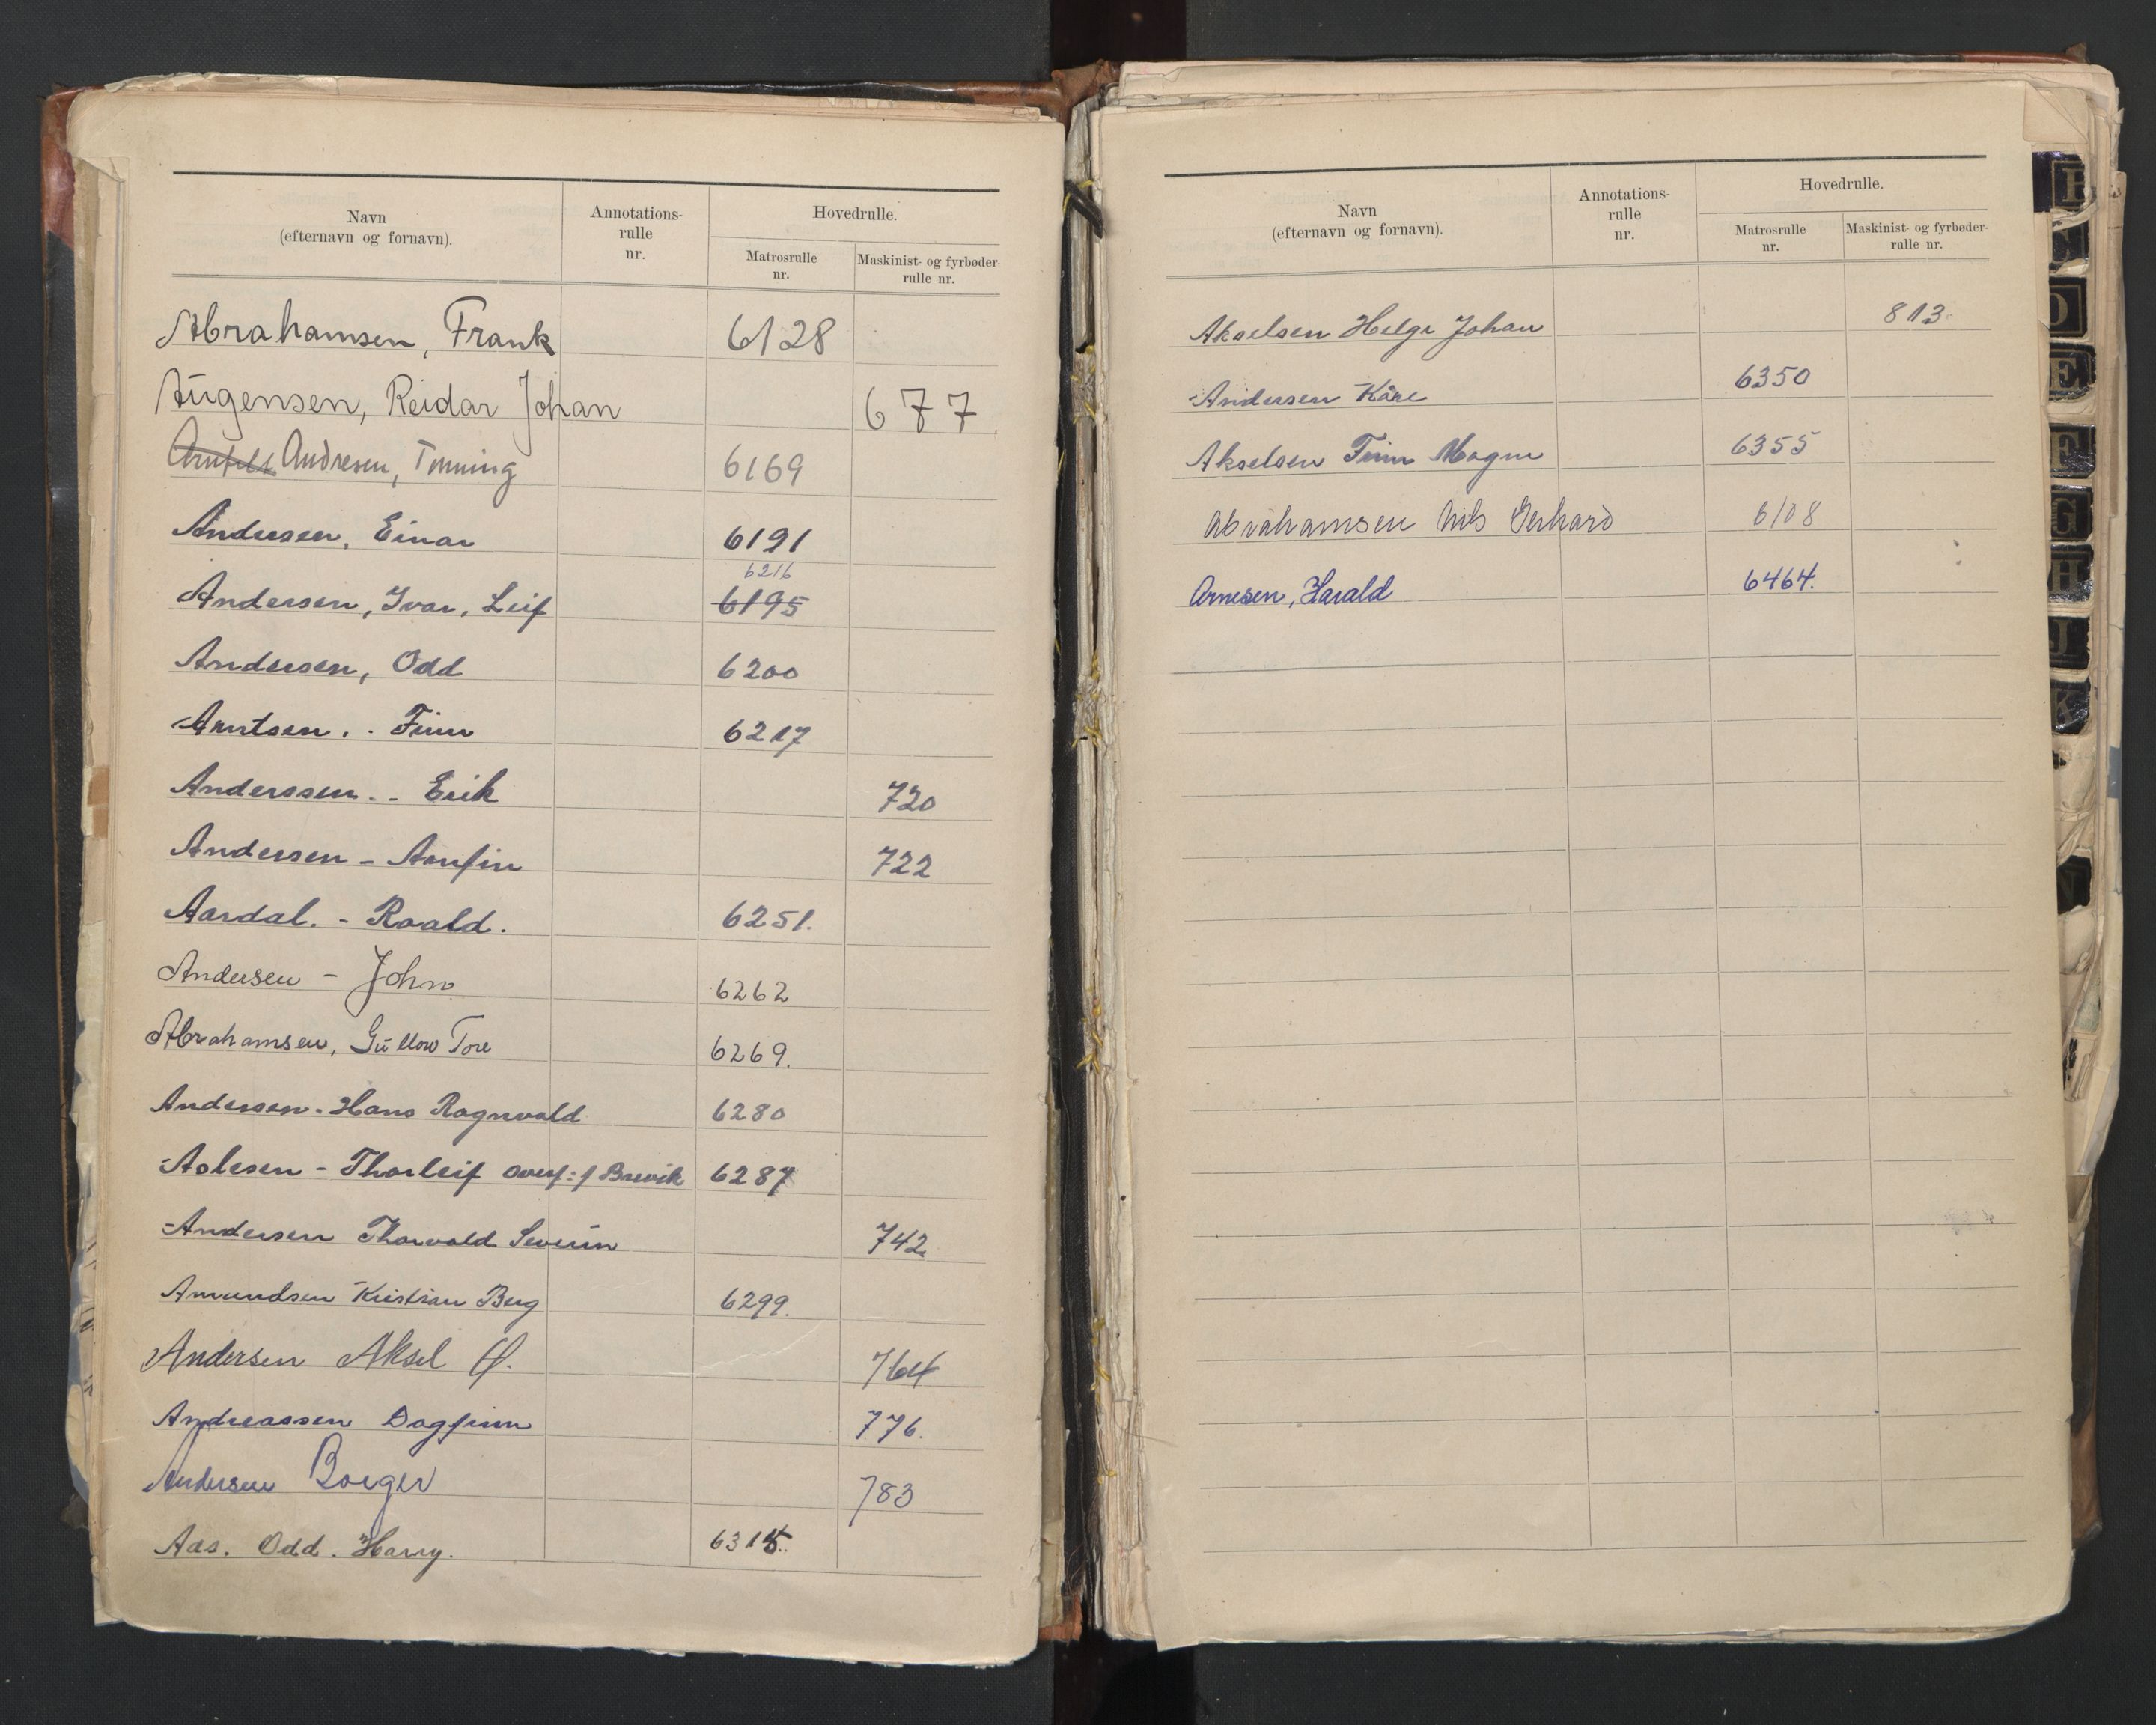 Navn
(efternavn og fornavn).
Annotations-
rulle
nr.
Hovedrulle.
Matrosrulle
nr.
Maskinist- og fyrbøder-
rulle nr.
Abrahamsen, Frank 6128
Augensen, Reidar Johan 677
Andresen, Tonning 6169
Andersen, Einar 6191
6216
Andersen, Ivar, Leif 6195
Andersen, Odd 6200
Arntsen. - Finn 6217
Anderssen. - Erik 720
Andersen - Arnfin 722
Aardal. - Roald. 6251.
Andersen - John 6262
Abrahamsen, Gullow Tore 6269.
Andersen - Hans Ragnvald 6280
Aslesen - Thorleif Overf: f Brevik 6287
Andersen Thorvald Severin 742
Amundsen Kristian Berg 6299.
Andersen Aksel 764
Andreassen Dagfinn 776.
Andersen Borger 783
Aas. Odd. Harry. 6315.
Navn
(efternavn og fornavn).
Annotations-
rulle
nr.
Hovedrulle.
Matrosrulle
nr.
Maskinist- og fyrbøder-
rulle nr.
Akselsen Helge Johan 813
Andersen Kåre 6350
Akselsen Finn Magne 6355
Abrahamsen Nils Gerhard 6108
Arnesen, Harald 6464.
E
F
G
H
J
K
N